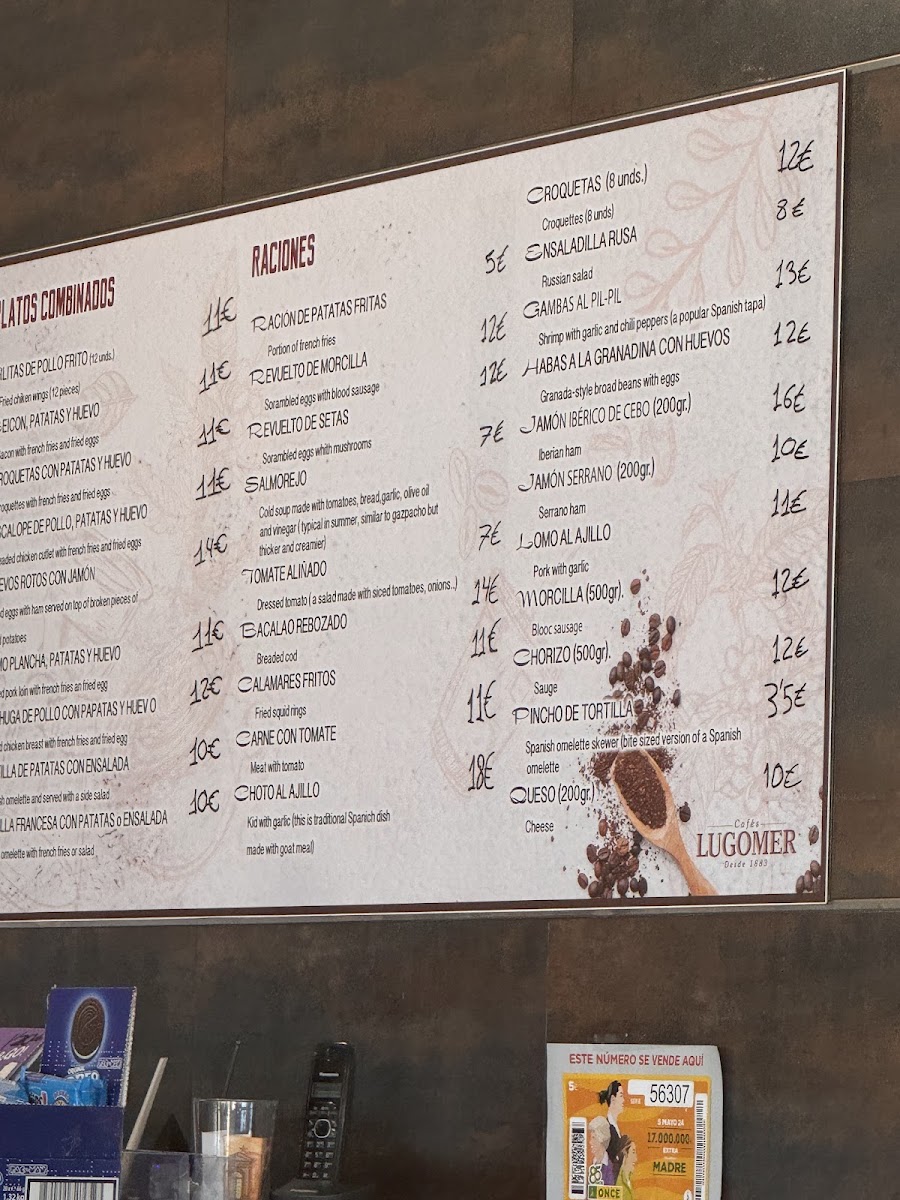 PLATOS COMBINADOS
LITAS DE POLLO FRITO (12 unds.) 11€
Fried chiken wings (12 pieces)
EICON, PATATAS Y HUEVO 11€
acon with french fries and fried eggs
ROQUETAS CON PATATAS Y HUEVO 11€
roquettes with french fries and fried eggs
SCALOPE DE POLLO, PATATAS Y HUEVO 11€
eaded chicken cutlet with french fries and fried eggs
EVOS ROTOS CON JAMÓN 14€
d eggs with ham served on top of broken pieces of
potatoes
MO PLANCHA, PATATAS Y HUEVO 11€
ed pork loin with french fries an fried egg
HUGA DE POLLO CON PAPATAS Y HUEVO 12€
d chicken breast with french fries and fried egg
ILLA DE PATATAS CON ENSALADA 10€
sh omelette and served with a side salad
LLA FRANCESA CON PATATAS o ENSALADA 10€
omelette with french fries or salad
RACIONES
RACIÓN DE PATATAS FRITAS 5€
Portion of french fries
REVUELTO DE MORCILLA 12€
Sorambled eggs with blood sausage
REVUELTO DE SETAS 12€
Sorambled eggs whith mushrooms
SALMOREJO 7€
Cold soup made with tomatoes, bread,garlic, olive oil
and vinegar ( typical in summer, similar to gazpacho but
thicker and creamier)
TOMATE ALIÑADO 7€
Dressed tomato ( a salad made with siced tomatoes, onions..)
BACALAO REBOZADO 14€
Breaded cod
CALAMARES FRITOS 11€
Fried squid rings
CARNE CON TOMATE 11€
Meat with tomato
CHOTO AL AJILLO 18€
Kid with garlic (this is traditional Spanish dish
made with goat meal)
CROQUETAS (8 unds.) 12€
Croquettes (8 unds)
ENSALADILLA RUSA 8€
Russian salad
GAMBAS AL PIL-PIL 13€
Shrimp with garlic and chili peppers (a popular Spanish tapa)
HABAS A LA GRANADINA CON HUEVOS 12€
Granada-style broad beans with eggs
JAMÓN IBÉRICO DE CEBO (200gr.) 16€
Iberian ham
JAMÓN SERRANO (200gr.) 10€
Serrano ham
LOMO AL AJILLO 11€
Pork with garlic
MORCILLA (500gr). 12€
Blooc sausage
CHORIZO (500gr). 12€
Sauge
PINCHO DE TORTILLA 3'5€
Spanish omelette skewer (bite sized version of a Spanish
omelette
QUESO (200gr.) 10€
Cheese
Cafés
LUGOMER
Desde 1883
ESTE NÚMERO SE VENDE AQUÍ
5€
56307
5 MAYO 24
17.000.000
EXTRA
MADRE
85
ONCE
Panasonic
1,32 kg